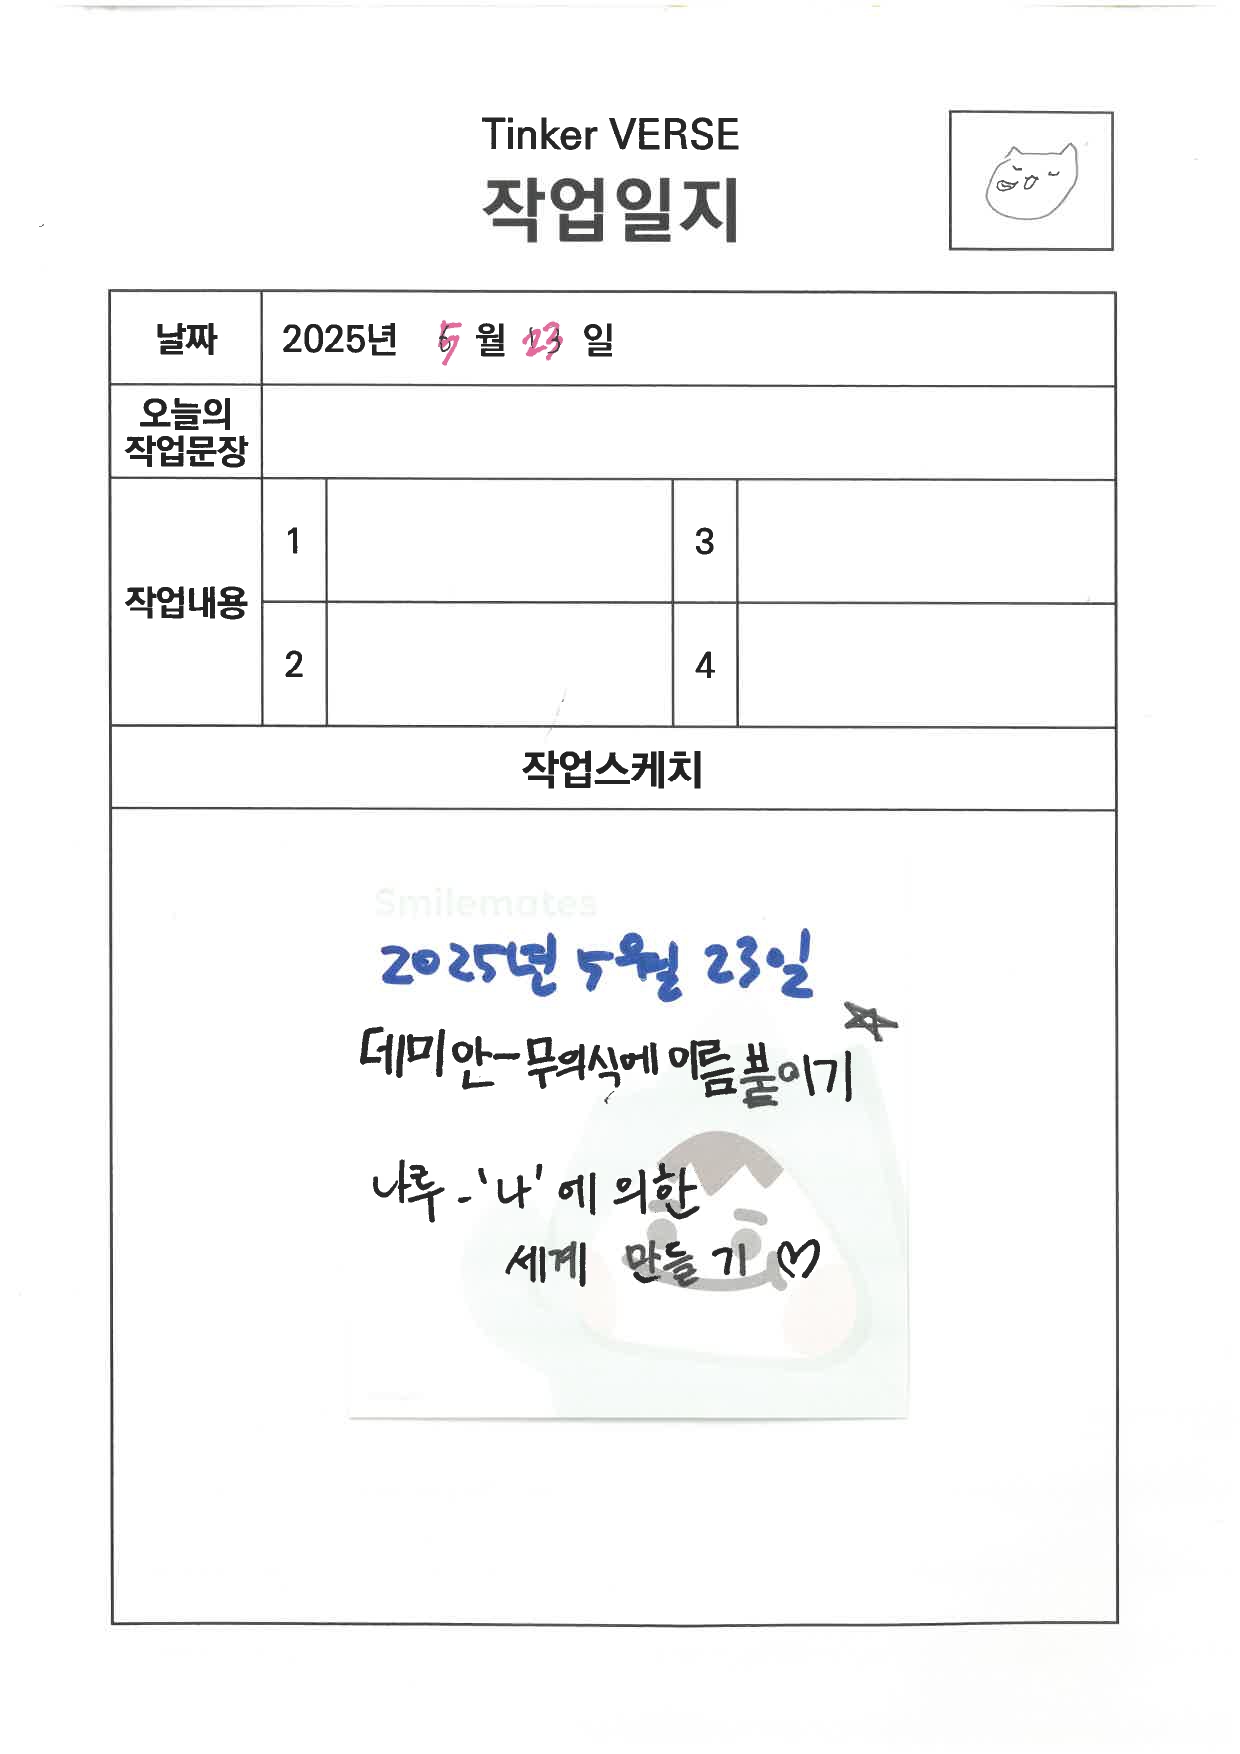 Tinker VERSE
작업일지
날짜
2025년 5월 23일
오늘의
작업문장
작업내용
1
3
2
4
작업스케치
Smilemates
2025년 5월 23일
데미안-무의식에 이름붙이기
나루-'나'에 의한
세계 만들기